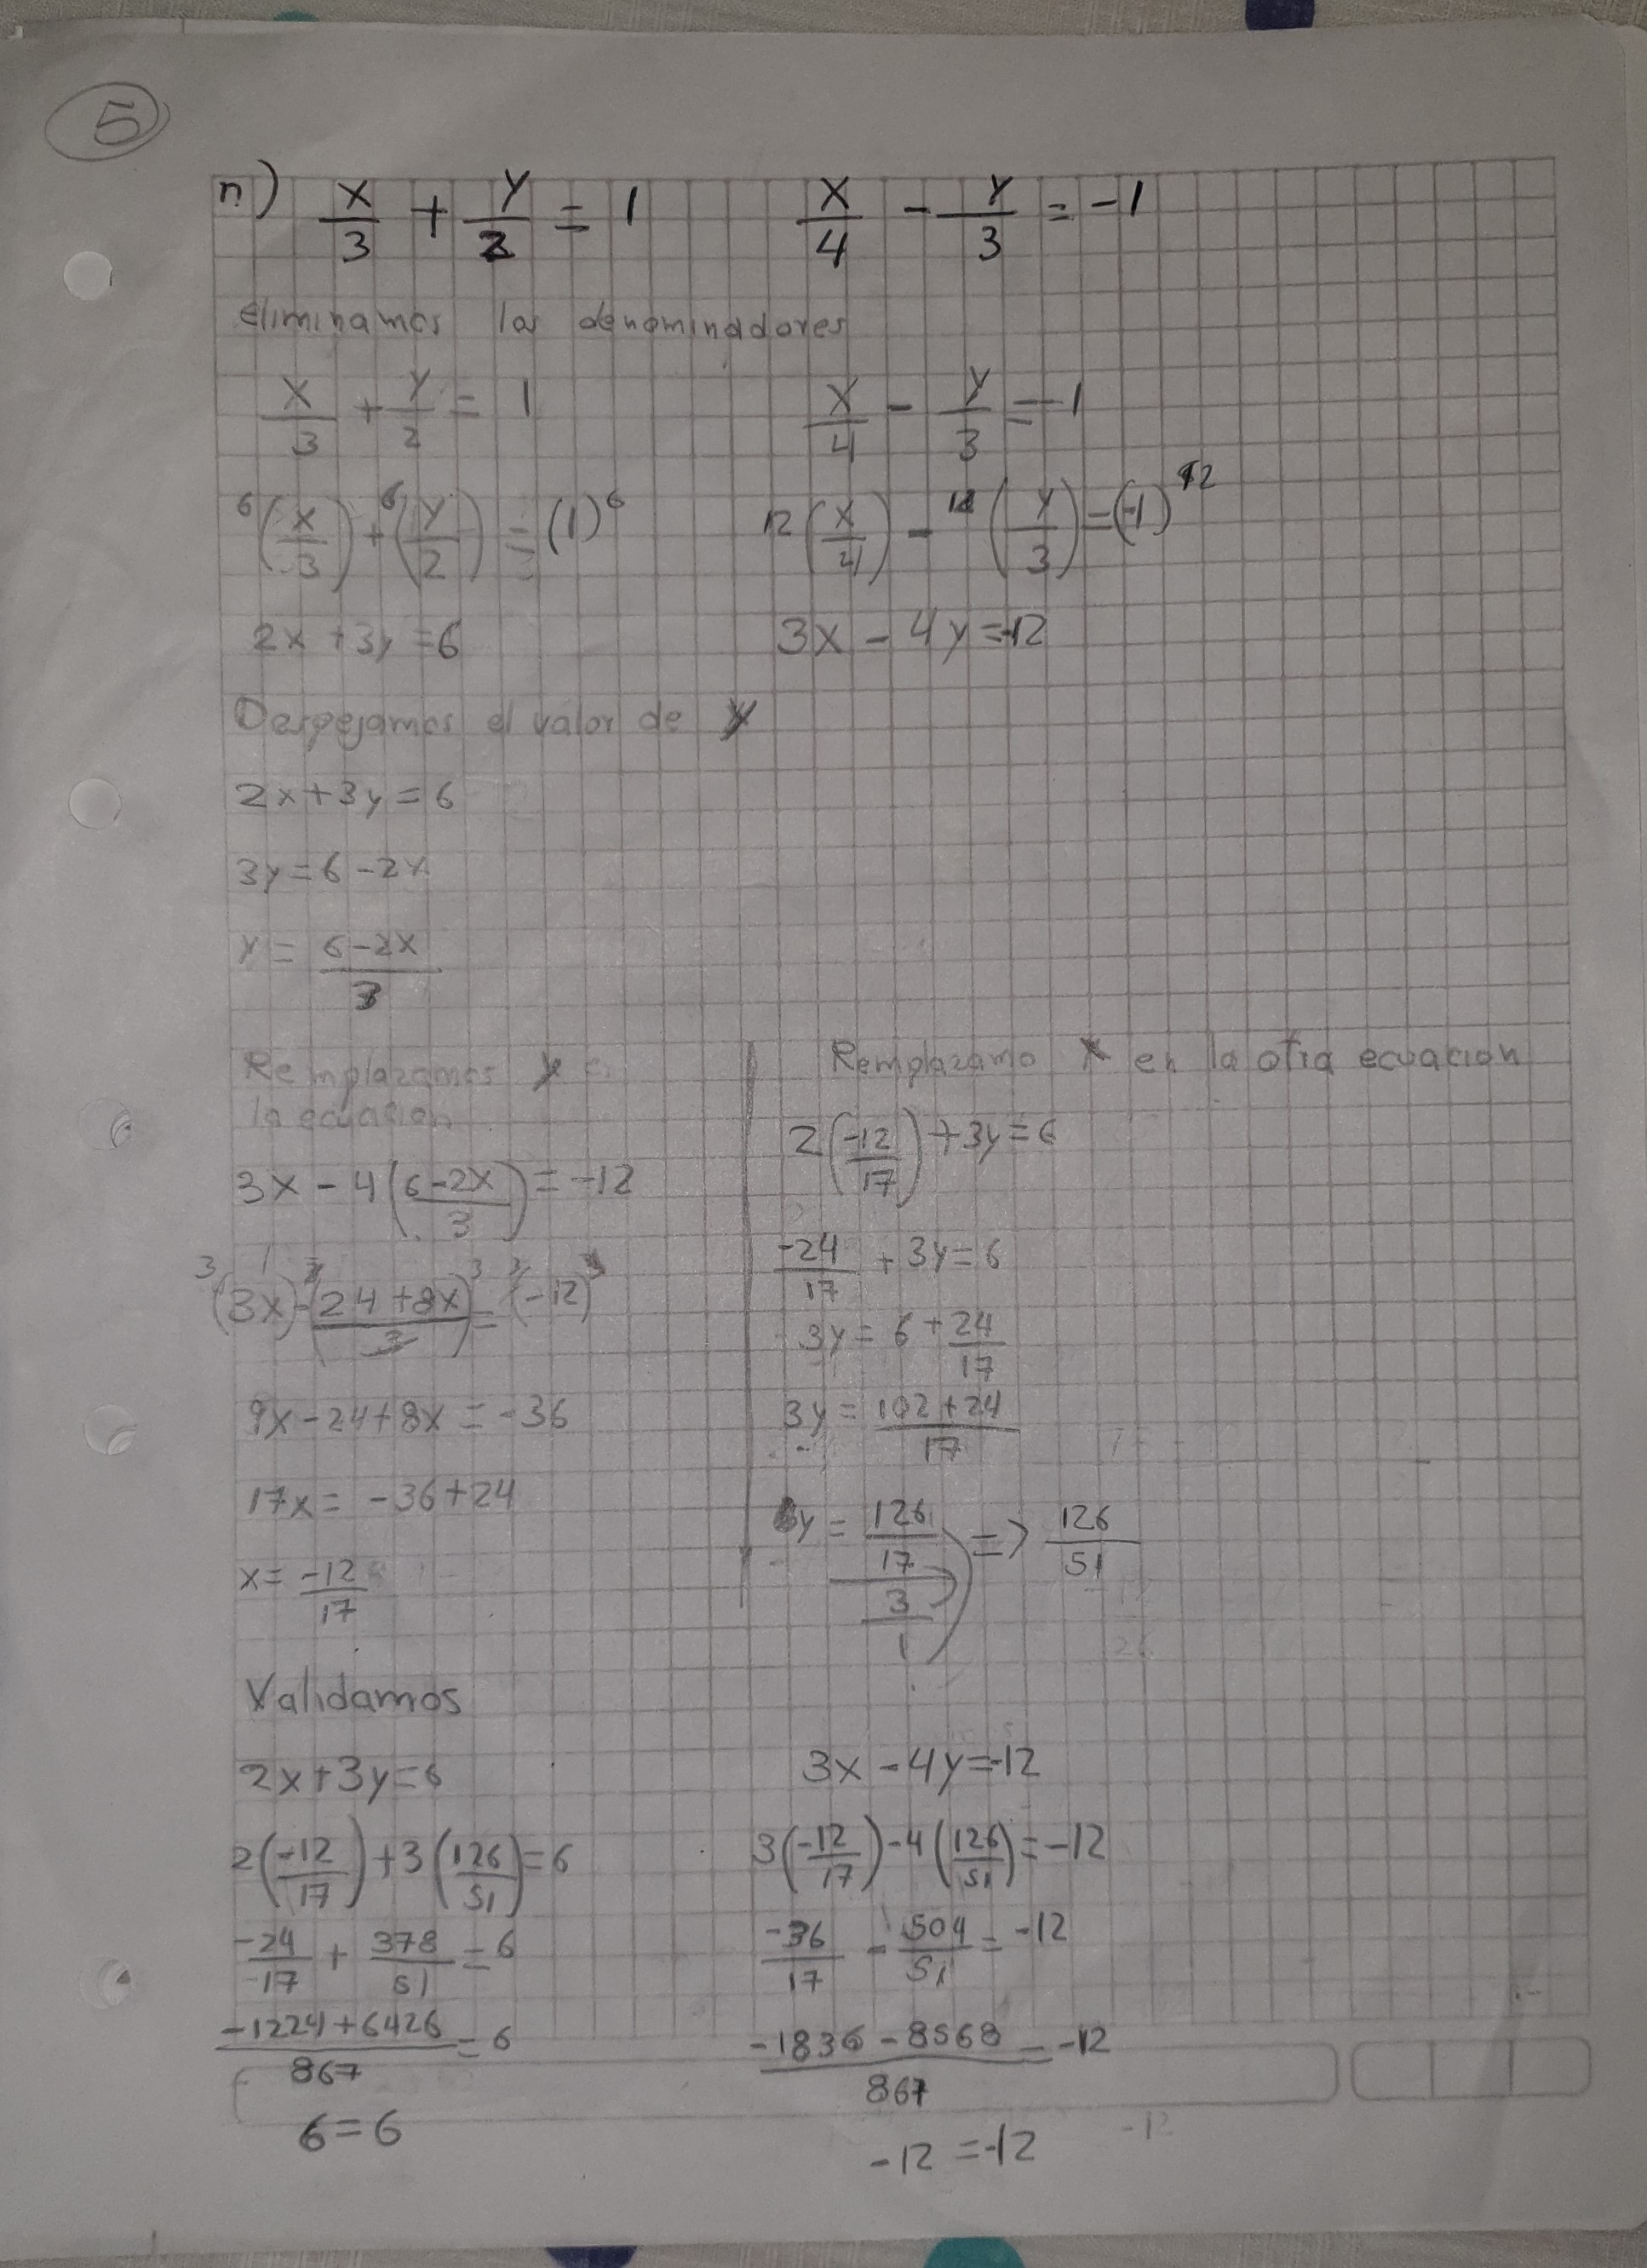 5
n) x/3 + y/2 = 1    x/4 - y/3 = -1
eliminamos los denominadores
x/3 + y/2 = 1    x/4 - y/3 = -1
6(x/3) + 6(y/2) = (1)6    12(x/4) - 12(y/3) = (-1)12
2x + 3y = 6    3x - 4y = -12
Despejamos el valor de y
2x + 3y = 6
3y = 6 - 2x
y = (6-2x)/3
Remplazamos y e
la ecuacion
3x - 4((6-2x)/3) = -12
3(3x) - 3((24+8x)/3)3 = (-12)3
9x - 24 + 8x = -36
17x = -36 + 24
x = -12/17
Remplazamo x en la otra ecuacion
2(-12/17) + 3y = 6
-24/17 + 3y = 6
3y = 6 + 24/17
3y = (102+24)/17
y = (126/17)/(3/1) => 126/51
Validamos
2x + 3y = 6    3x - 4y = -12
2(-12/17) + 3(126/51) = 6    3(-12/17) - 4(126/51) = -12
-24/17 + 378/51 = 6    -36/17 - 504/51 = -12
(-1224+6426)/867 = 6    (-1836-8568)/867 = -12
6 = 6    -12 = -12
-12